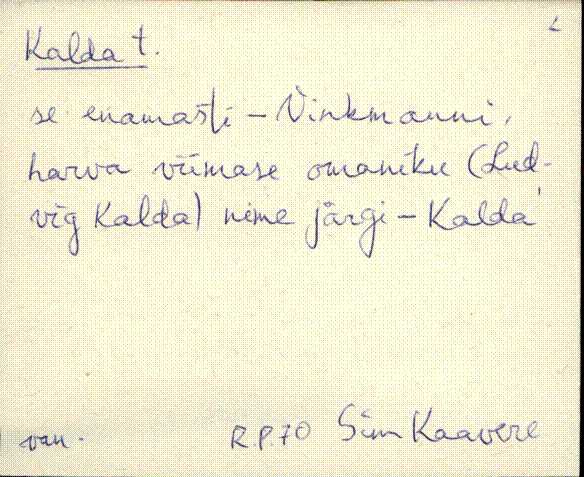 Kalda t.
se enamasti – Vinkmanni,
harva viimase omaniku (Lud-
vig Kalda) nime järgi – Kalda
van. R.P.70 Sim Kaavere